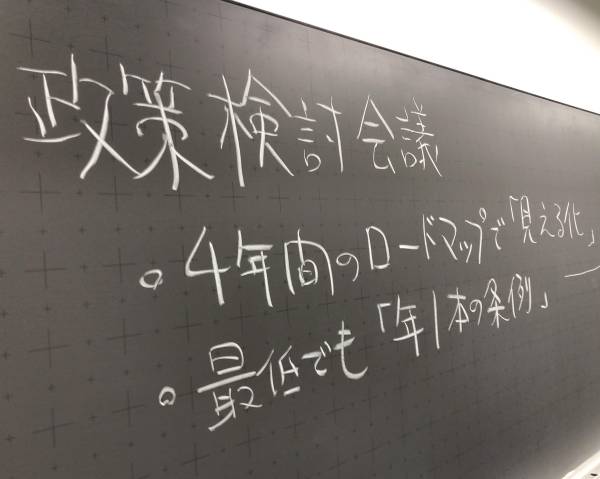 政策検討会議
。4年間のロードマップで「見える化」
。最低でも「年1本の条例」―